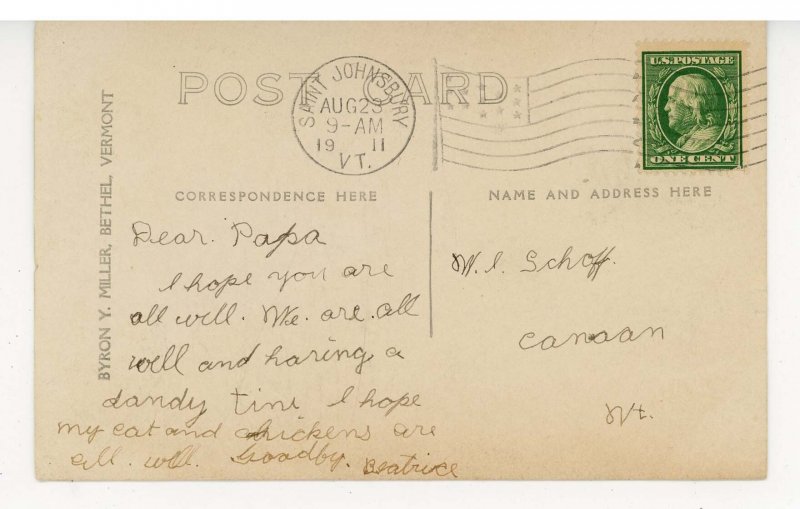 POST CARD
SAINT JOHNSBURY
AUG 23
9-AM
19 11
VT.
U.S. POSTAGE
ONE CENT
BYRON Y. MILLER, BETHEL, VERMONT
CORRESPONDENCE HERE
NAME AND ADDRESS HERE
Dear. Papa
I hope you are
all well. We. are. all
well and having a
dandy time I hope
my cat and chickens are
all. well. Goodby. Beatrice
W. I. Schoff.
Canaan
Vt.